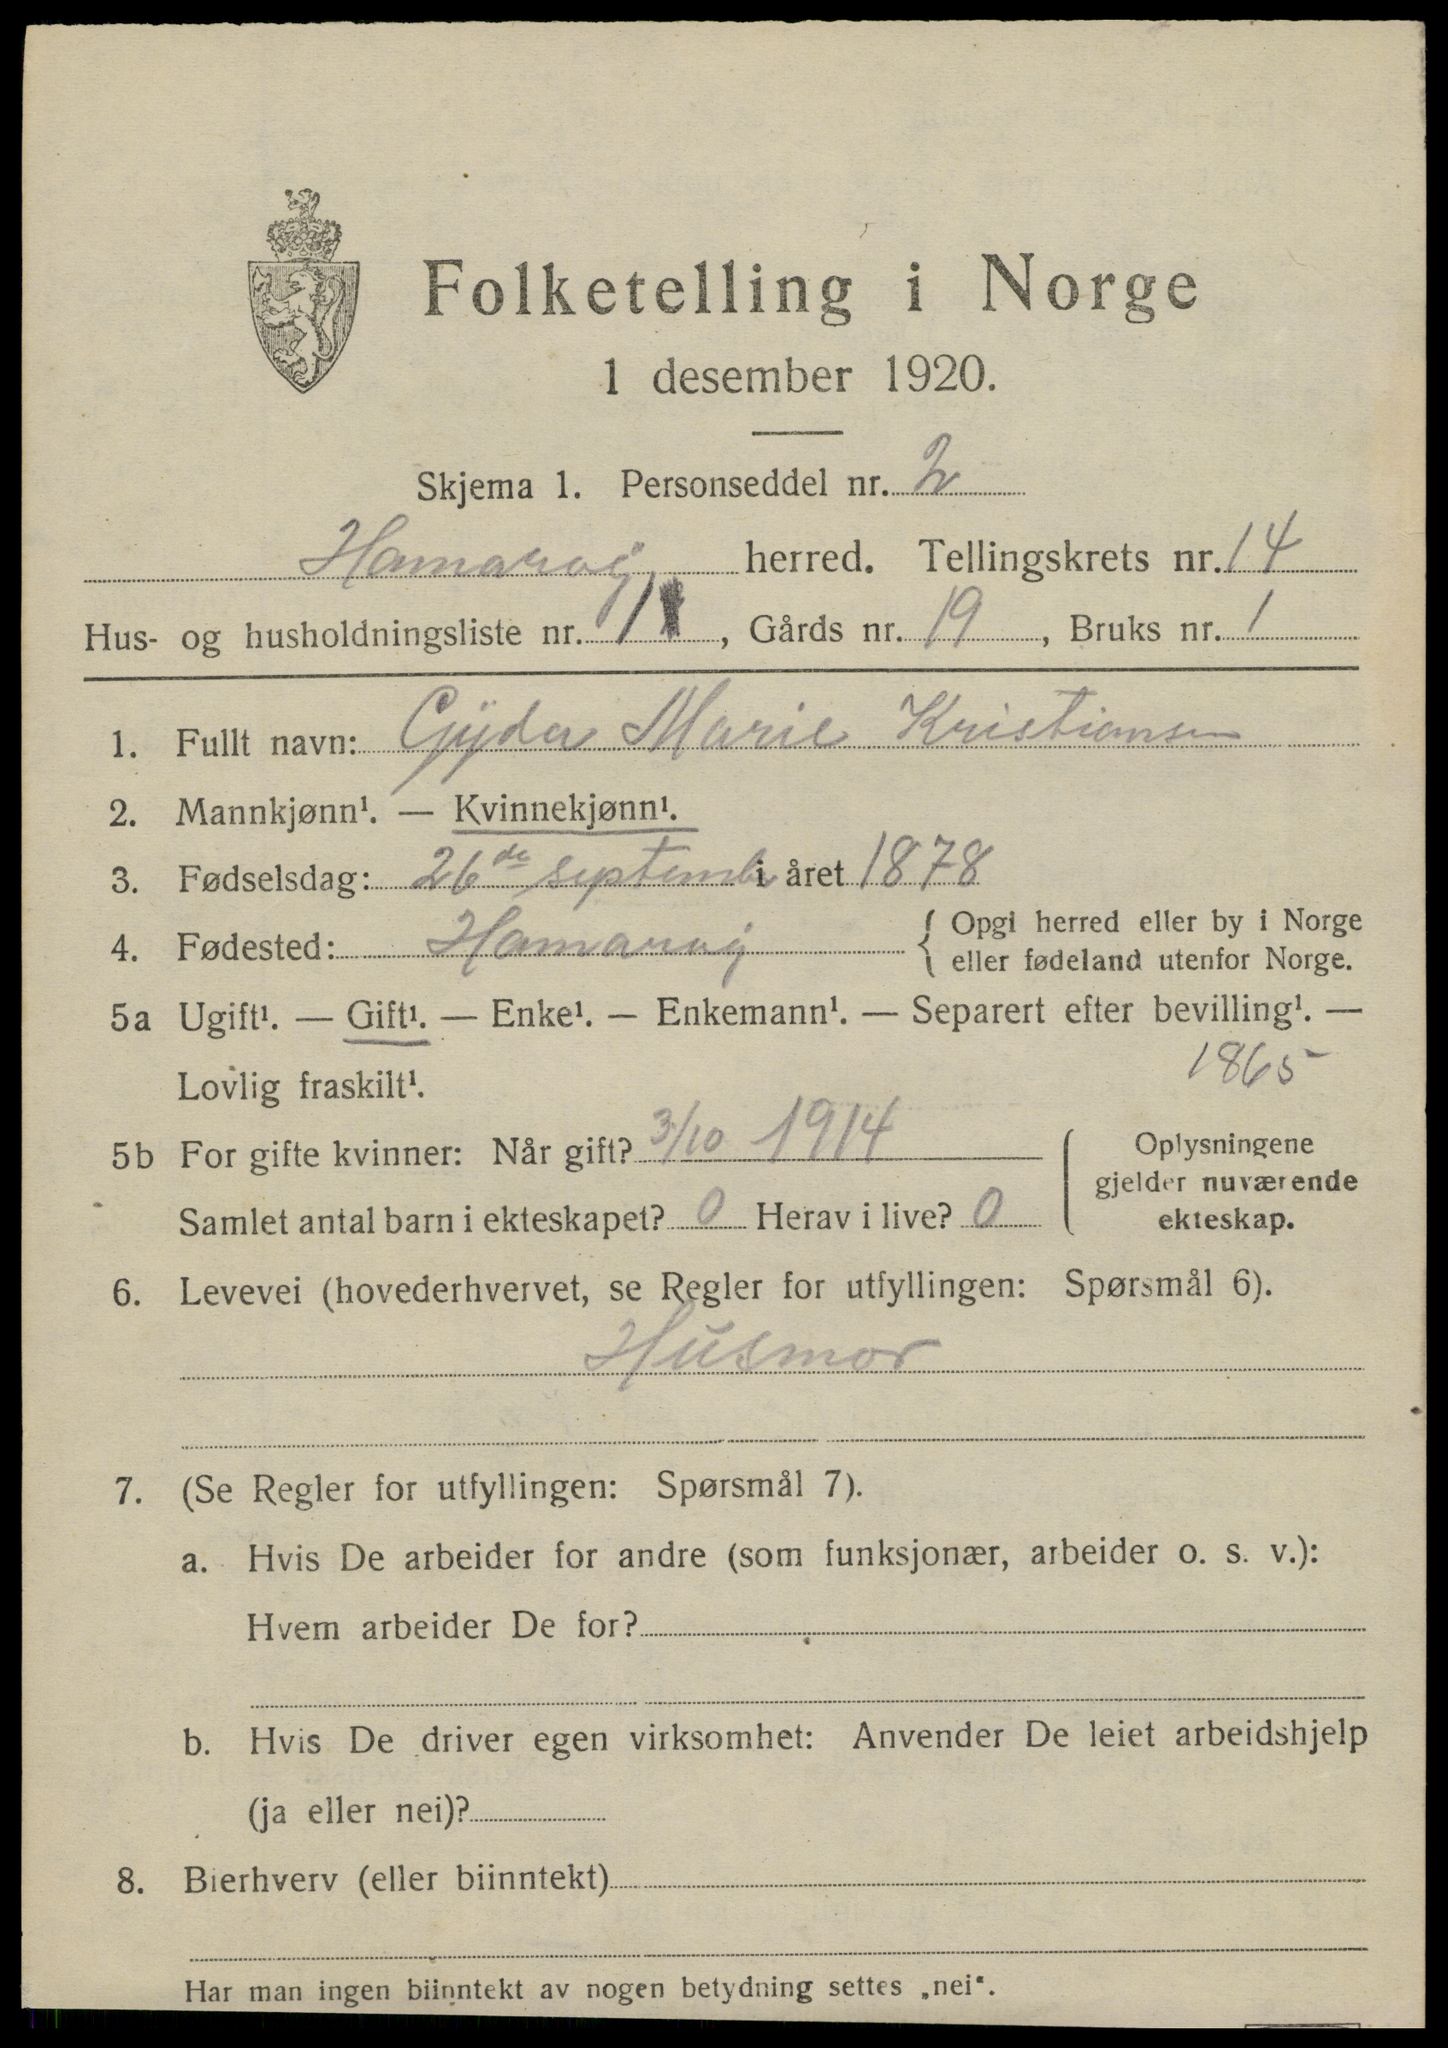 Folketelling i Norge
1 desember 1920.
Skjema 1. Personseddel nr. 2
Hamarøy herred. Tellingskrets nr. 14
Hus- og husholdningsliste nr. 1, Gårds nr. 19, Bruks nr. 1
1. Fullt navn: Gÿda Marie Kristiansen
2. Mannkjønn¹. — Kvinnekjønn¹.
3. Fødselsdag: 26de septembr i året 1878
4. Fødested: Hamarøy { Opgi herred eller by i Norge
eller fødeland utenfor Norge.
5a Ugift¹. — Gift¹. — Enke¹. — Enkemann¹. — Separert efter bevilling¹. —
Lovlig fraskilt¹. 1865
5b For gifte kvinner: Når gift? 3/10 1914
Samlet antal barn i ekteskapet? 0 Herav i live? 0
Oplysningene
gjelder nuværende
ekteskap.
6. Levevei (hovederhvervet, se Regler for utfyllingen: Spørsmål 6).
Husmor
7. (Se Regler for utfyllingen: Spørsmål 7).
a. Hvis De arbeider for andre (som funksjonær, arbeider o. s. v.):
Hvem arbeider De for?
b. Hvis De driver egen virksomhet: Anvender De leiet arbeidshjelp
(ja eller nei)?
8. Bierhverv (eller biinntekt)
Har man ingen biinntekt av nogen betydning settes „nei“.